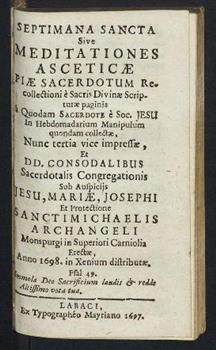 SEPTIMANA SANCTA
Sive
MEDITATIONES
ASCETICÆ
PIÆ SACERDOTUM Re-
collectioni è Sacris Divinæ Scrip-
turæ paginis
à Quodam SACERDOTE è Soc. JESU
In Hebdomadarium Manipulum
quondam collectæ,
Nunc tertia vice impressæ,
Et
DD. CONSODALIBUS
Sacerdotalis Congregationis
Sub Auspicijs
JESU, MARIÆ, JOSEPHI
Et Protectione
SANCTI MICHAELIS
ARCHANGELI
Monspurgi in Superiori Carniolia
Erectæ,
Anno 1698. in Xenium distributæ.
Psal 49.
Immola Deo Sacrificium laudis & redde
Altissimo vota tua.
LABACI,
Ex Typographéo Mayriano 1697.